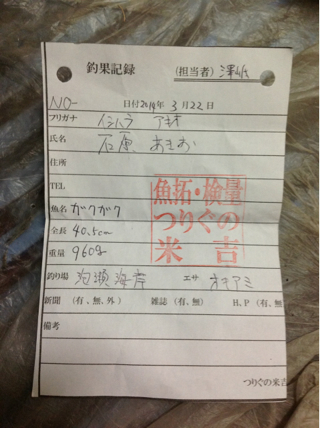 釣果記録 (担当者) 澤岻
NO-
日付2019年 3月22日
フリガナ イシハラ アキオ
氏名 石原 あきお
住所
TEL
魚拓・検量
つりぐの
米吉
魚名 ガクガク
全長 40.5cm
重量 960g
釣り場 泡瀬海岸 エサ オキアミ
新聞 (有、無、外) 雑誌 (有、無) H.P (有、無
備考
つりぐの米吉